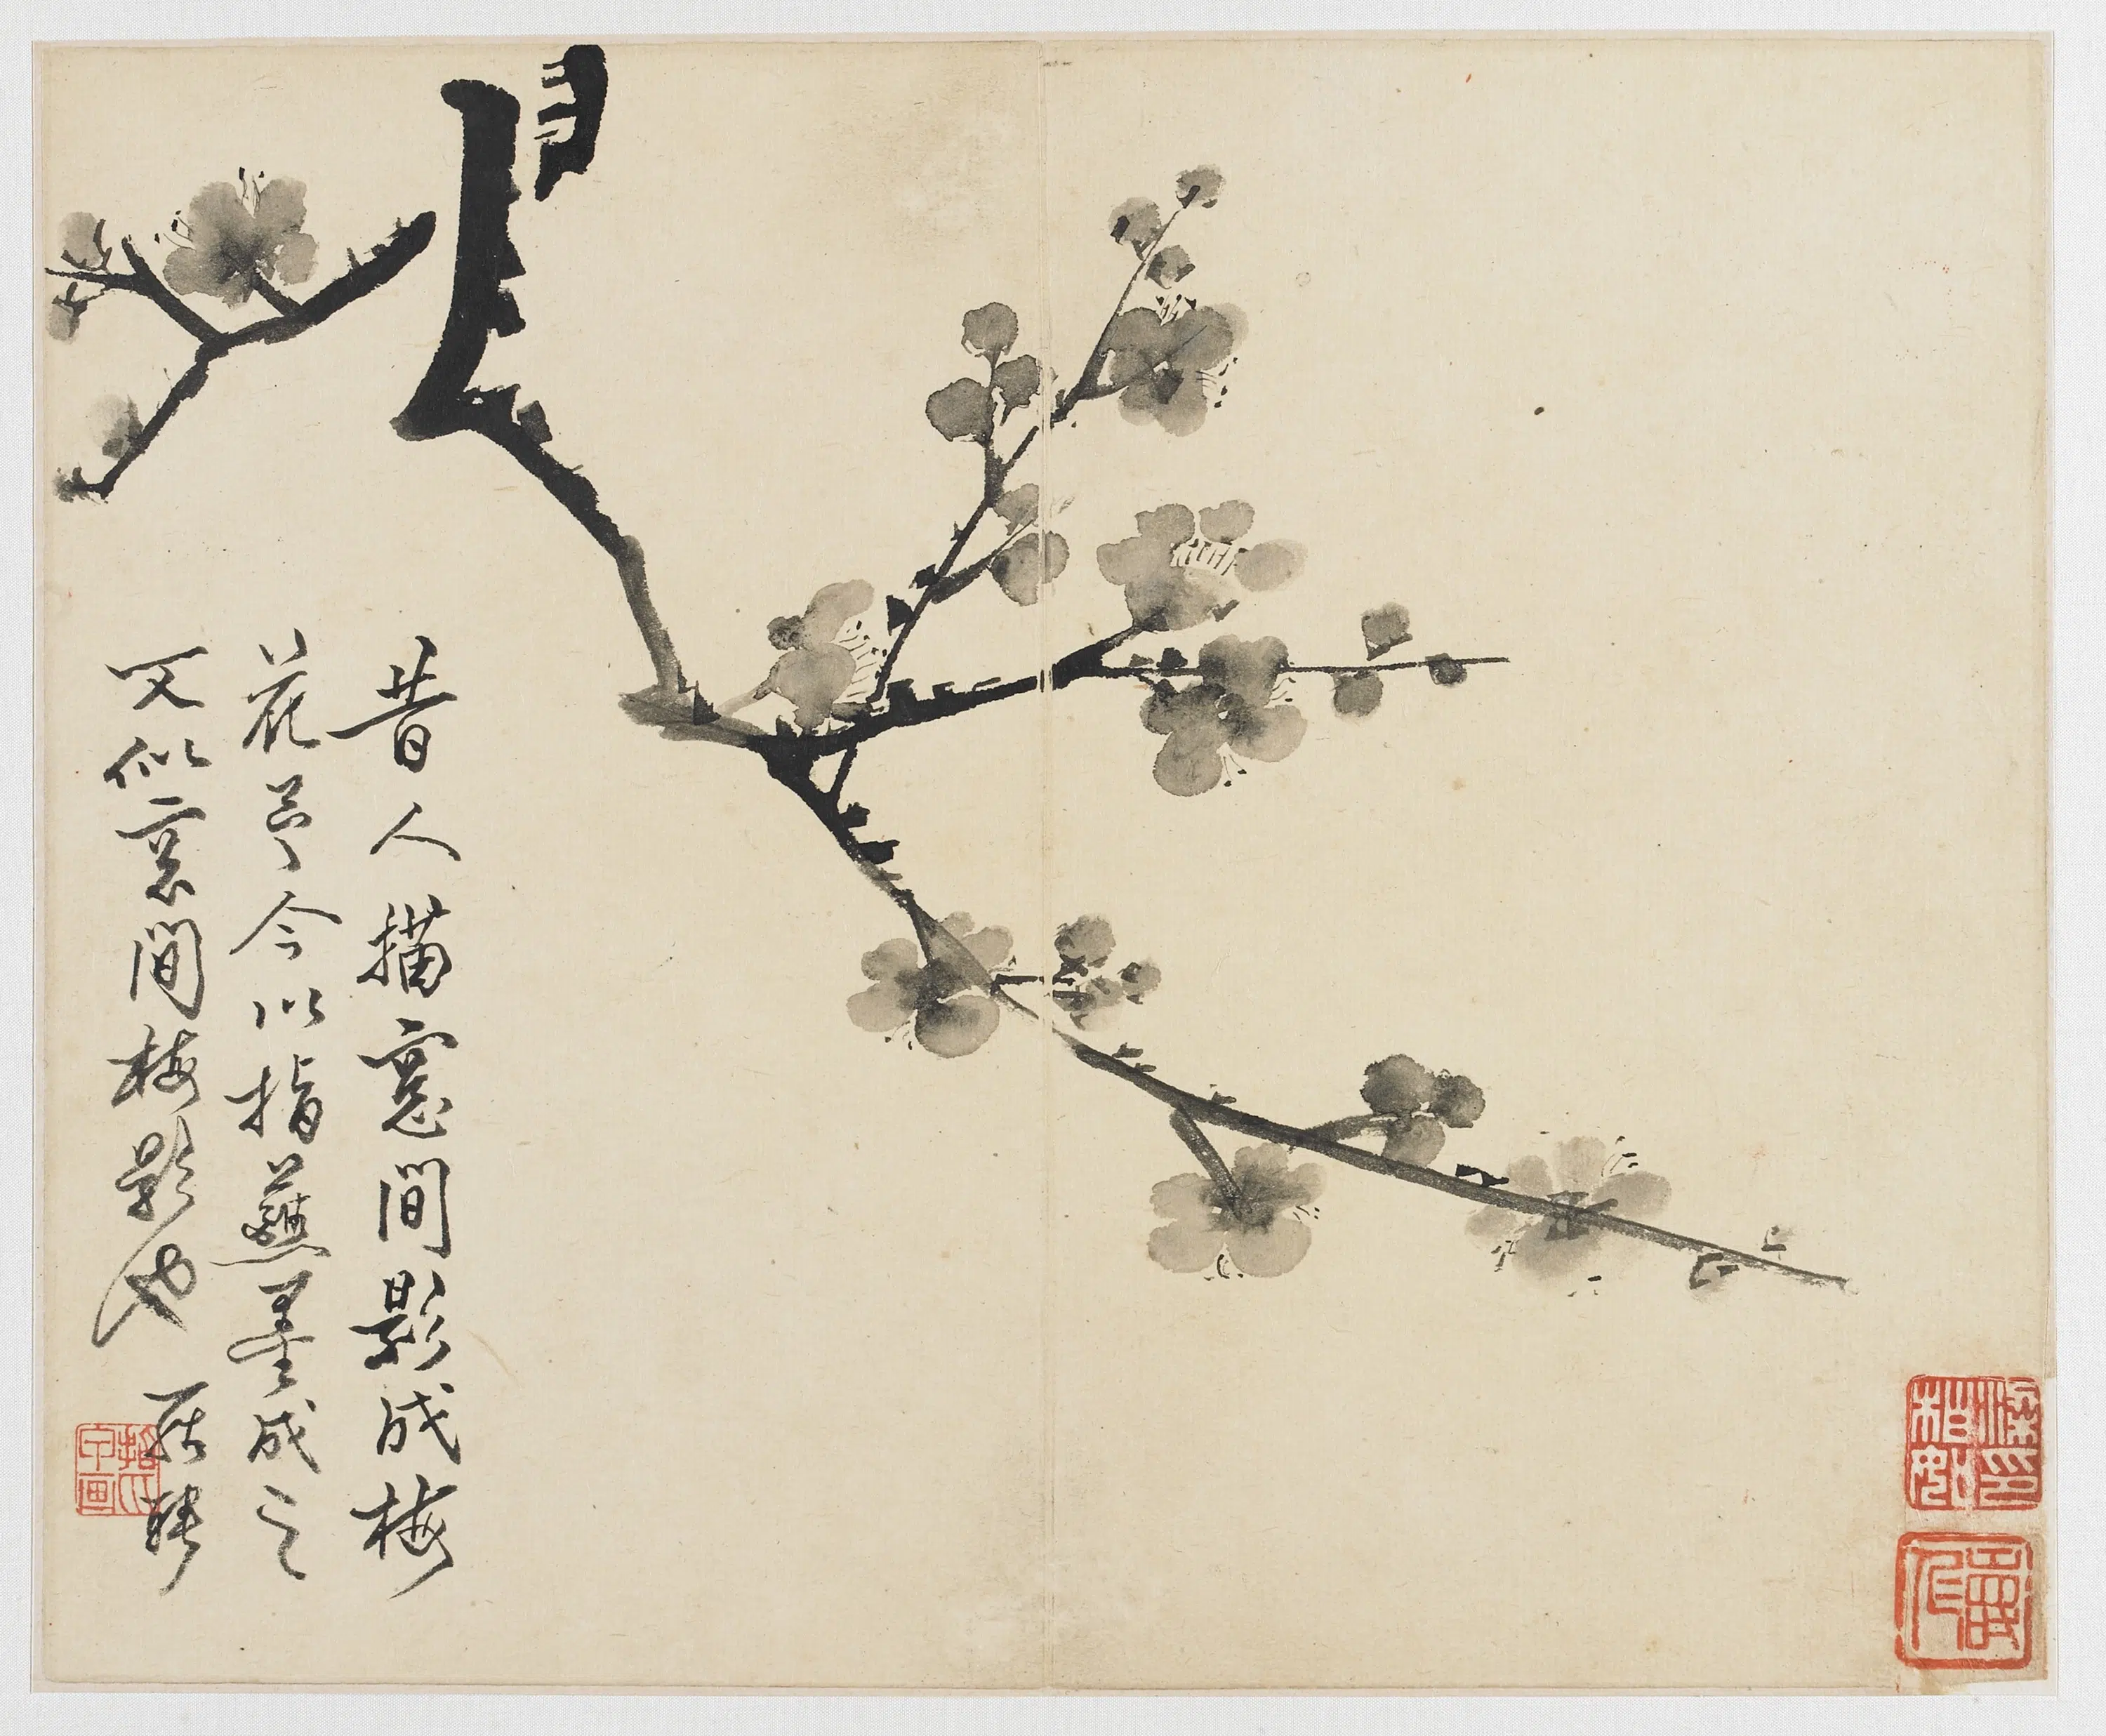 昔人描窻間影成梅
花予今以指蘸墨成之
又似窓間梅影也 羅聘